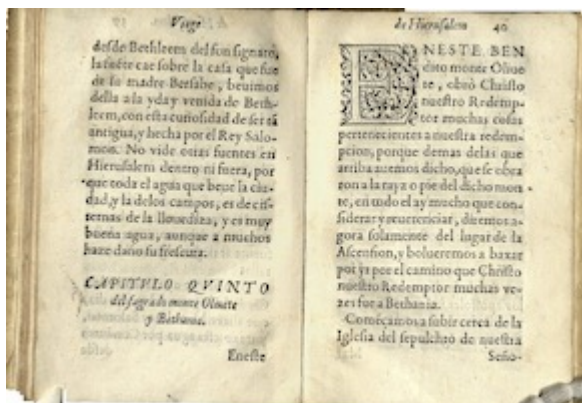 Viage
desde Bethleem del fon signato,
la fuēte cae sobre la casa que fue
de la madre Bersabe, beuimos
della a la yda y venida de Beth-
leem, con esta curiosidad de ser tā
antigua, y hecha por el Rey Salo-
mon. No vide otras fuentes en
Hierusalem dentro ni fuera, por
que toda el agua que beue la ciu-
dad, y la de los campos, es de cis-
ternas de la llouediza, y es muy
buena agua, aunque a muchos
haze daño su frescura.
CAPITVLO QVINTO
del sagrado monte Oliuete
y Bethania.
Eneste
de Hierusalem 40
ENESTE BEN
dito monte Oliue
te, obrò Christo
nuestro Redemp-
tor muchas cosas
pertenecientes a nuestra redem-
pcion, porque demas delas que
arriba auemos dicho, que se obra
ron a la raya o pie del dicho mon
te, en todo el ay mucho que con-
siderar y reuerenciar, diremos a-
gora solamente del lugar de la
Ascension, y bolueremos a baxar
por ya por el camino que Christo
nuestro Redemptor muchas ve-
zes fue a Bethania.
Começamos a subir cerca de la
Iglesia del sepulchro de nuestra
Seño-